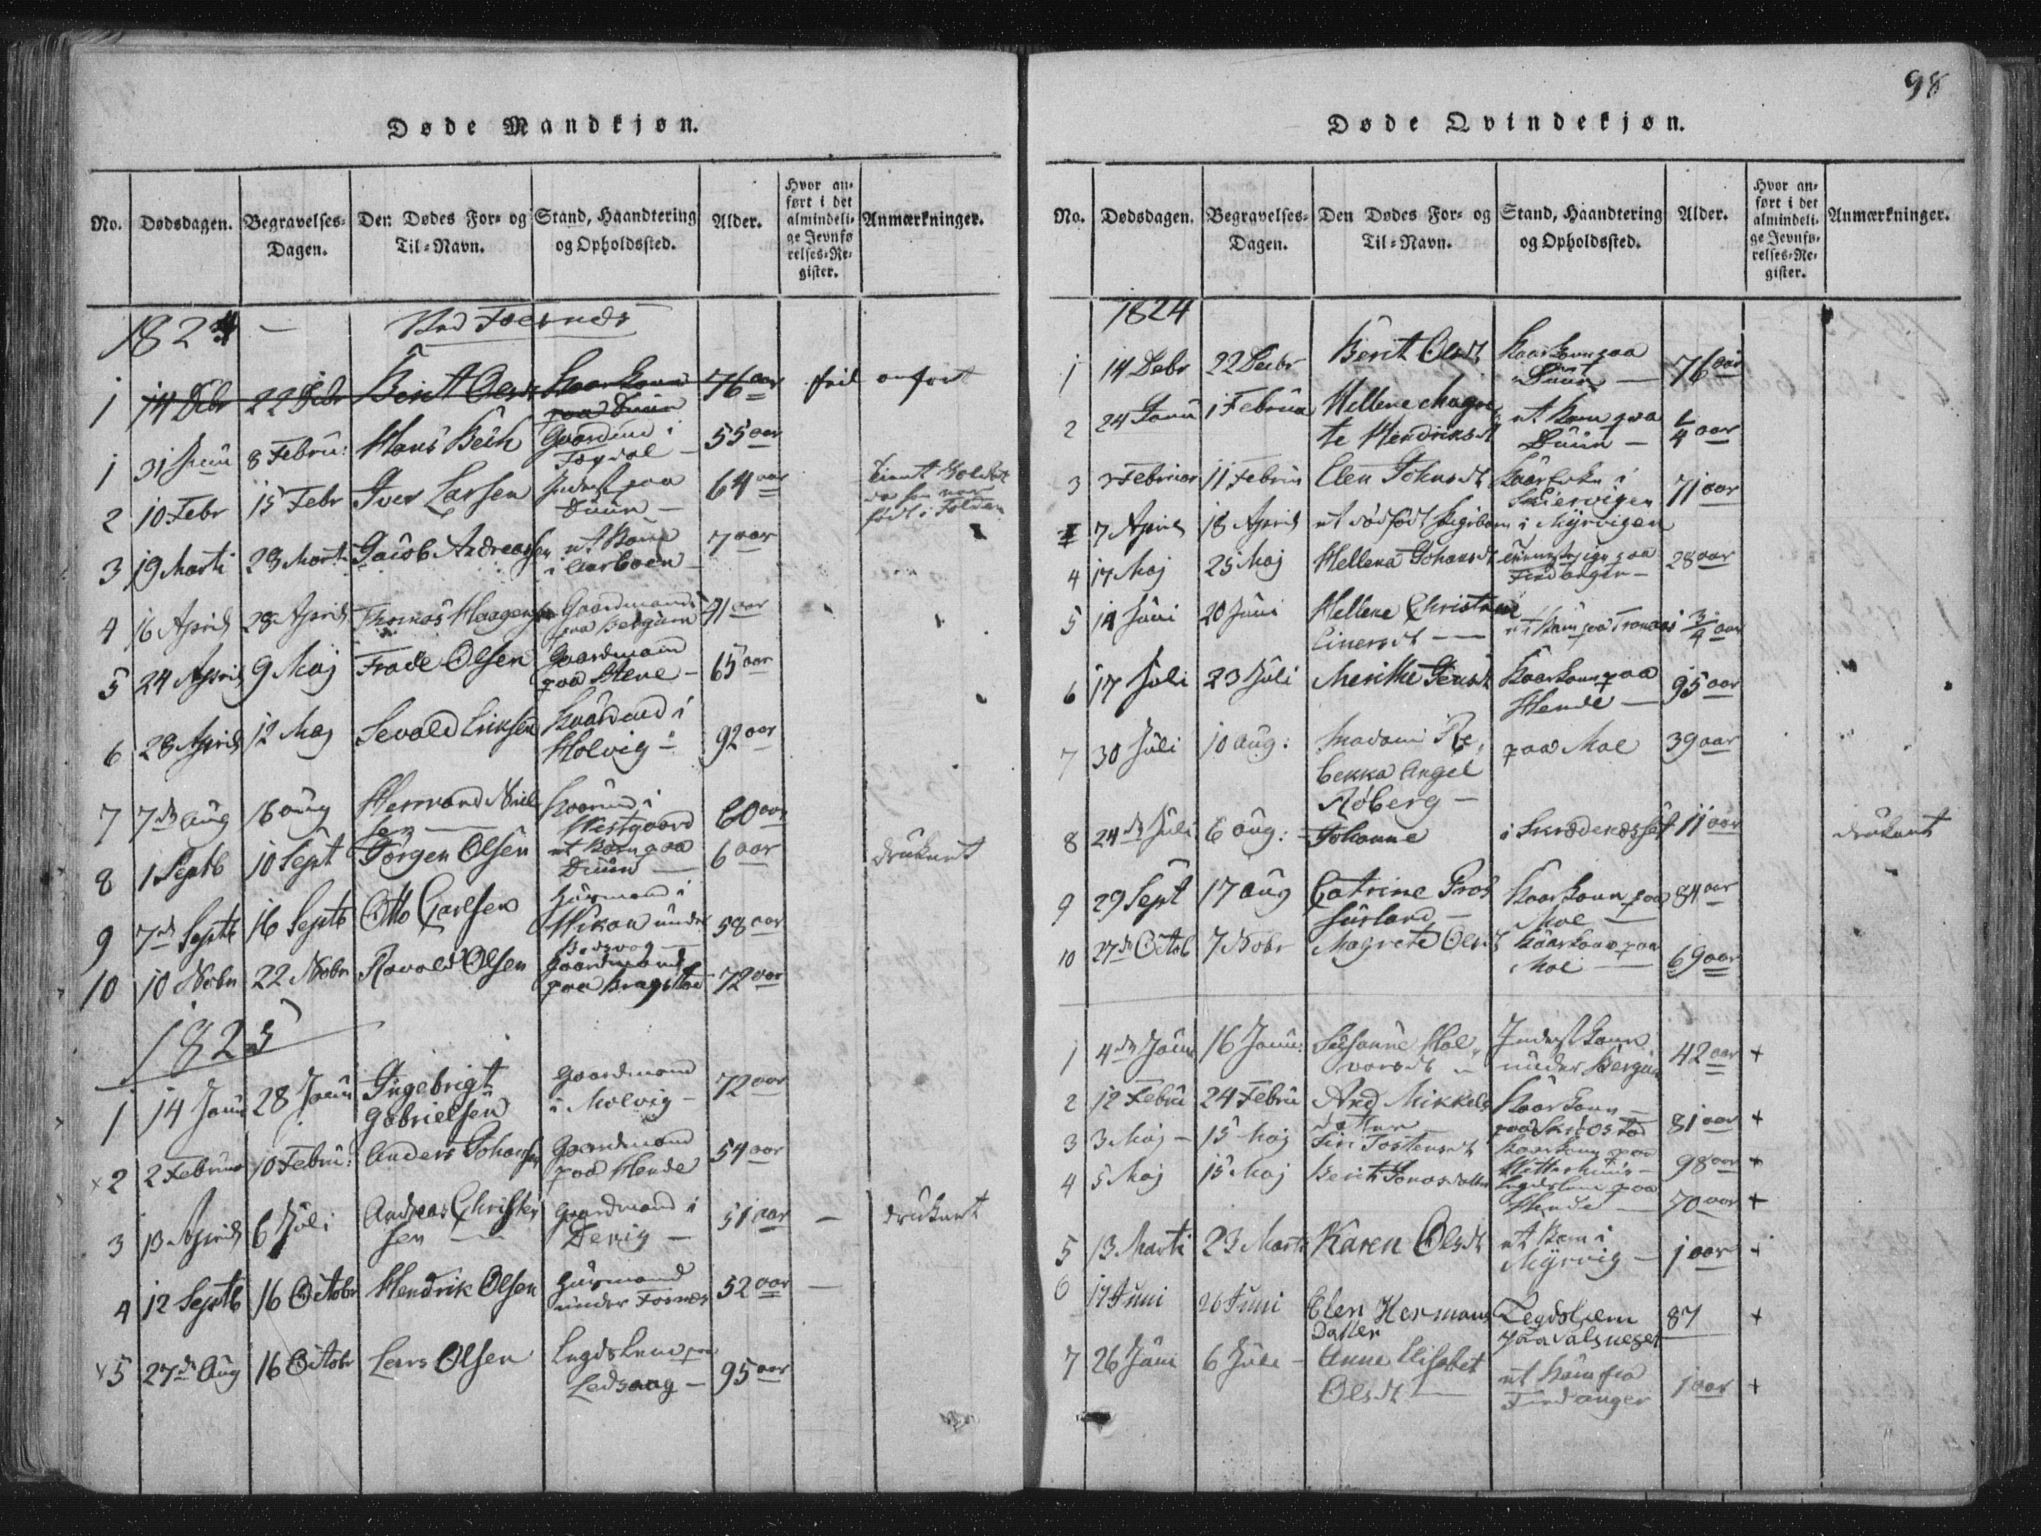 98
Døde Mandkjøn.
No. Dødsdagen. Begravelses-Dagen. Den Dødes For- og Til-Navn. Stand, Haandtering og Opholdssted. Alder. Hvor anført i det almindelige Jevnførelses-Register. Anmærkninger.
1824 — Ved Foesnæs
1 14 Debr 22 Debr Berit Olsd 76 aar feil anført
paa Duun
1 31 Janu 8 Febru: Hans Bech Gaardmd i 55 aar
2 10 Febr 15 Febr Iver Larsen Inderst paa 64 aar
Duun —
født i Folden
3 19 Marti 28 Mart Jacob Andreassen et Barn 7 aar
i Aarboen —
4 16 April 28 April Thomas Haagensen Gaardmand 71 aar
paa Bergum
5 24 April 9 Maj Frode Olsen Gaardmand 65 aar
paa Hene —
6 28 April 12 Maj Sevald Eriksen Kaarmd i 92 aar
Holvig —
7 7de Aug 16 Aug Hermand Niel Kaarmd i 60 aar
sen — Westgaard
8 1 Septb 10 Sept Jørgen Olsen et Barn paa 6 aar druknet
Duun —
9 7de Septb 16 Septb Otto Carlsen Huusmand i 58 aar
Wikan under
10 10 Nobr 22 Nobr Ravald Olsen Gaardmand 72 aar
paa Bragstad
1825
1 14 Janu 28 Janu Ingebrigt Gaardmand 72 aar
Gabrielsen i Molvig —
× 2 2 Februar 10 Febru: Anders Johansen Gaardmand 54 aar
paa Hende
3 13 April 6 Juli Andreas Christen Gaardmand i 51 aar — druknet
sen — Devig —
4 12 Septb 16 Octobr Hendrik Olsen Huusmand 52 aar —
under Fosnæs
× 5 27de Aug 16 Octobr Lars Olsen Legdslem paa 95 aar
Ledsaag —
Døde Qvindekjøn.
No. Dødsdagen. Begravelses-Dagen. Den Dødes For- og Til-Navn. Stand, Haandtering og Opholdssted. Alder. Hvor anført i det almindelige Jevnførelses-Register. Anmærkninger.
1824
1 14 Debr 22 Debr Berit Olsdt Kaarkone paa 76 aar
Duun —
2 24 Janu 1 Februa Hellene Magre et Barn paa 1/4 aar
te Hendriksdt Duun —
3 3 Februar 11 Febru Elen Johnsdt i 71 aar
7 April 18 April et dødfødt Pigebarn i Myrvigen
4 17 Maj 25 Maj Hellena Johansdt paa 28 aar
Findanger —
5 14 Juni 20 Juni Hellene Christine et Barn paa Tranaas 3/4 aar
Einersdt —
6 17 Juli 23 Juli Merithe Jensdt Kaarkone paa 95 aar
Hende —
7 30 Juli 10 Aug: Madam Re paa Moe 39 aar
bekka Angel
Røberg —
8 24de Juli 6 Aug: Johanne i 11 aar druknet
9 29 Sept 17 Aug Catrine Kaarkone paa 84 aar
Moe —
10 27de Octob 7 Nobr Magrete Olsdt Kaarkone paa 69 aar
Moe —
1 4de Janu 16 Janu: Susanne Hal Inderstkone 42 aar +
vorsdt — under Bergum
2 12 Febru 24 Febru And Mikkels Kaarkone — 81 aar +
datter
3 3 Maj — 15 Maj Siri Tostensdt Kaarkone paa 98 aar +
4 5 Maj 15 Maj Berit Jonasdatter Legdslem paa 70 aar +
Hende —
5 13 Marti 23 Marti Karen Olsdt et Barn i 1 aar +
Myrvig —
6 17 Juni 26 Juni Elen Hermans Legdslem 87 +
datter paa Valsneset
7 26 Juni 6 Juli — Anne Elisabet et Barn fra 1 aar +
Olsdt — Findanger